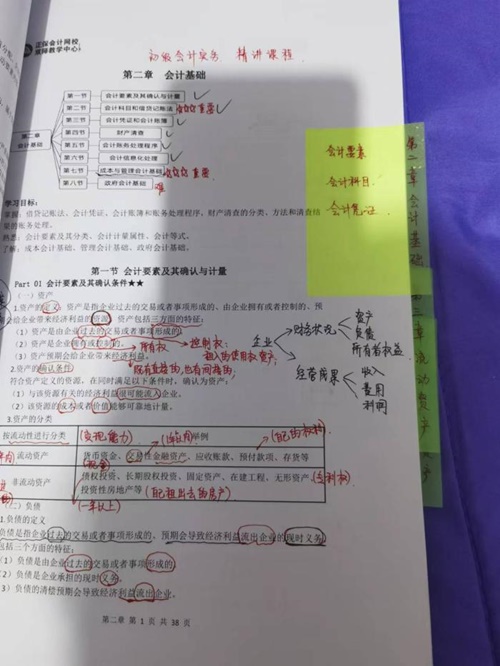 正保会计网校
初级会计实务 精讲课程
第二章 会计基础
第二章
会计基础
第一节 会计要素及其确认与计量
第二节 会计科目和借贷记账法 重要
第三节 会计凭证和会计账簿
第四节 财产清查
第五节 会计账务处理程序
第六节 会计信息化处理
第七节 成本与管理会计基础 重要
第八节 政府会计基础
难
会计要素
会计科目
会计凭证
第二章会计基础
第三章流动资产
学习目标:
掌握:借贷记账法、会计凭证、会计账簿和账务处理程序、财产清查的分类、方法和清查结
果的账务处理。
熟悉:会计要素及其分类、会计计量属性、会计等式。
了解:成本会计基础、管理会计基础、政府会计基础。
第一节 会计要素及其确认与计量
Part 01 会计要素及其确认条件★★
(一)资产
1.资产的定义:资产是指企业过去的交易或者事项形成的、由企业拥有或者控制的、预
期会给企业带来经济利益的资源。资产包括三方面的特征:
(1)资产是由企业过去的交易或者事项形成的。
(2)资产是企业拥有或控制的。
(3)资产预期会给企业带来经济利益。
所有权 控制权:
租入的使用权资产
既有直接的,也有间接的
企业
财务状况
资产
负债
所有者权益
经营成果
收入
费用
利润
2.资产的确认条件
符合资产定义的资源,在同时满足以下条件时,确认为资产:
(1)与该资源有关的经济利益很可能流入企业。
(2)该资源的成本或者价值能够可靠地计量。
3.资产的分类
按流动性进行分类 (变现能力) (1年内) 举例 (配的权利)
流动资产 货币资金、交易性金融资产、应收账款、预付款项、存货等
(现金)
非流动资产 债权投资、长期股权投资、固定资产、在建工程、无形资产(专利权)
投资性房地产等 (配租出去的房产)
(一年以上)
(二)负债
1.负债的定义
负债是指企业过去的交易或者事项形成的、预期会导致经济利益流出企业的现时义务。
包括三个方面的特征:
(1)负债是由企业过去的交易或者事项形成的。
(2)负债是企业承担的现时义务。
(3)负债的清偿预期会导致经济利益流出企业。
第二章 第 1 页 共 38 页